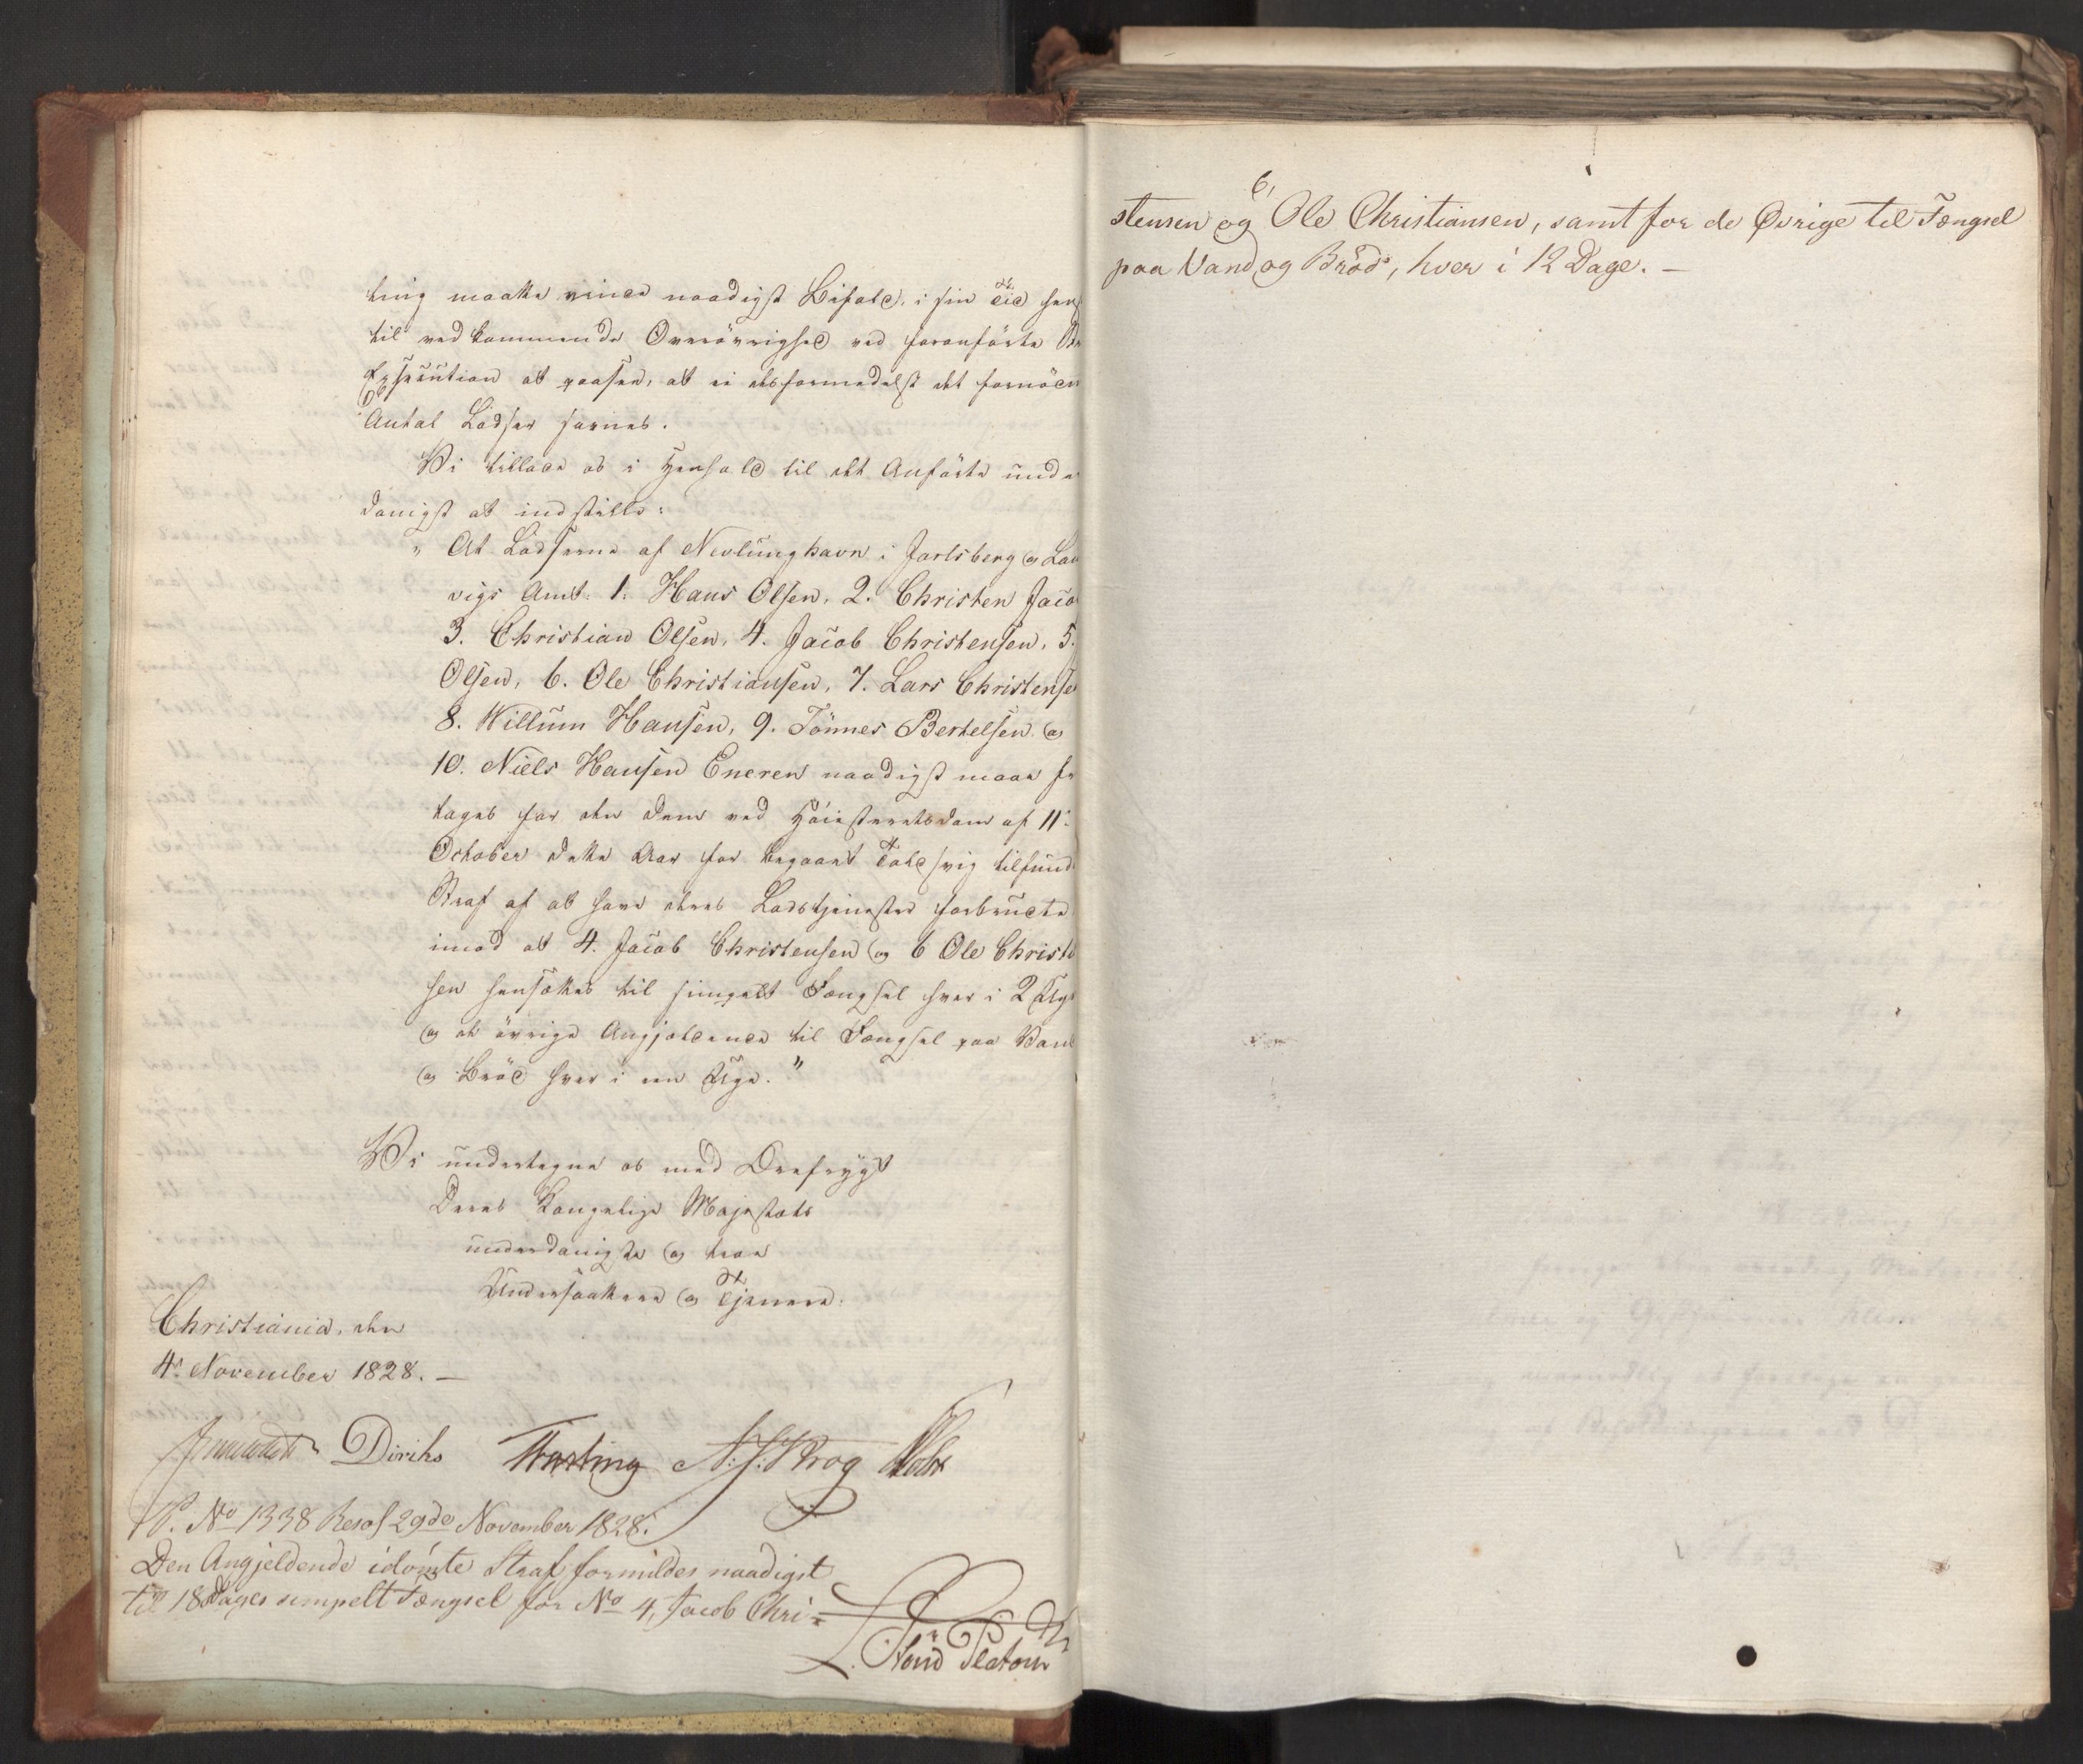 ting maatte vinde naadigst Bifald, i sin Tid hen
til vedkommende Overøvrighed ved foranførte
Execution at paasee, at ei desformedelst det fornødn
Antal Lodser savnes.
Vi tillade os i Henhold til det Anførte unde
danigst at indstille:
" At Lodserne af Nevlunghavn i Jarlsberg og Lau
vigs Amt: 1. Hans Olsen, 2. Christen Jaco
3. Christian Olsen, 4. Jacob Christensen, 5.
Olsen, 6. Ole Christiansen, 7. Lars Christense
8. Willum Hansen, 9. Tönnes Bertelsen og
10. Niels Hansen Eneren naadigst maae fr
tages for den dem ved Høiesteretsdom af 11.
October dette Aar for begaaet Toldsvig tilfund
Straf af at have deres Lodstjenester forbrudte
imod at 4. Jacob Christensen og 6 Ole Christi
sen hensættes til simpelt Fængsel hver i 2 Uge
og de øvrige Angjældende til Fængsel paa Vand
og Brød hver i een Uge. "
Vi undertegne os med Ærefrygt
Deres Kongelige Majestæts
underdanigste og troe
Undersaatter og Tjenere.
Christiania, den
4. November 1828. —
Diriks N. J. Krog
P. No 1338 Resol 29de November 1828.
Den Angjeldende idömte Straf formildes naadigst
til 18 Dages simpelt Fængsel for No 4, Jacob Chri=
stensen og 6, Ole Christiansen, samt for de Øvrige til Fængsel
paa Vand og Bröd, hver i 12 Dage. —